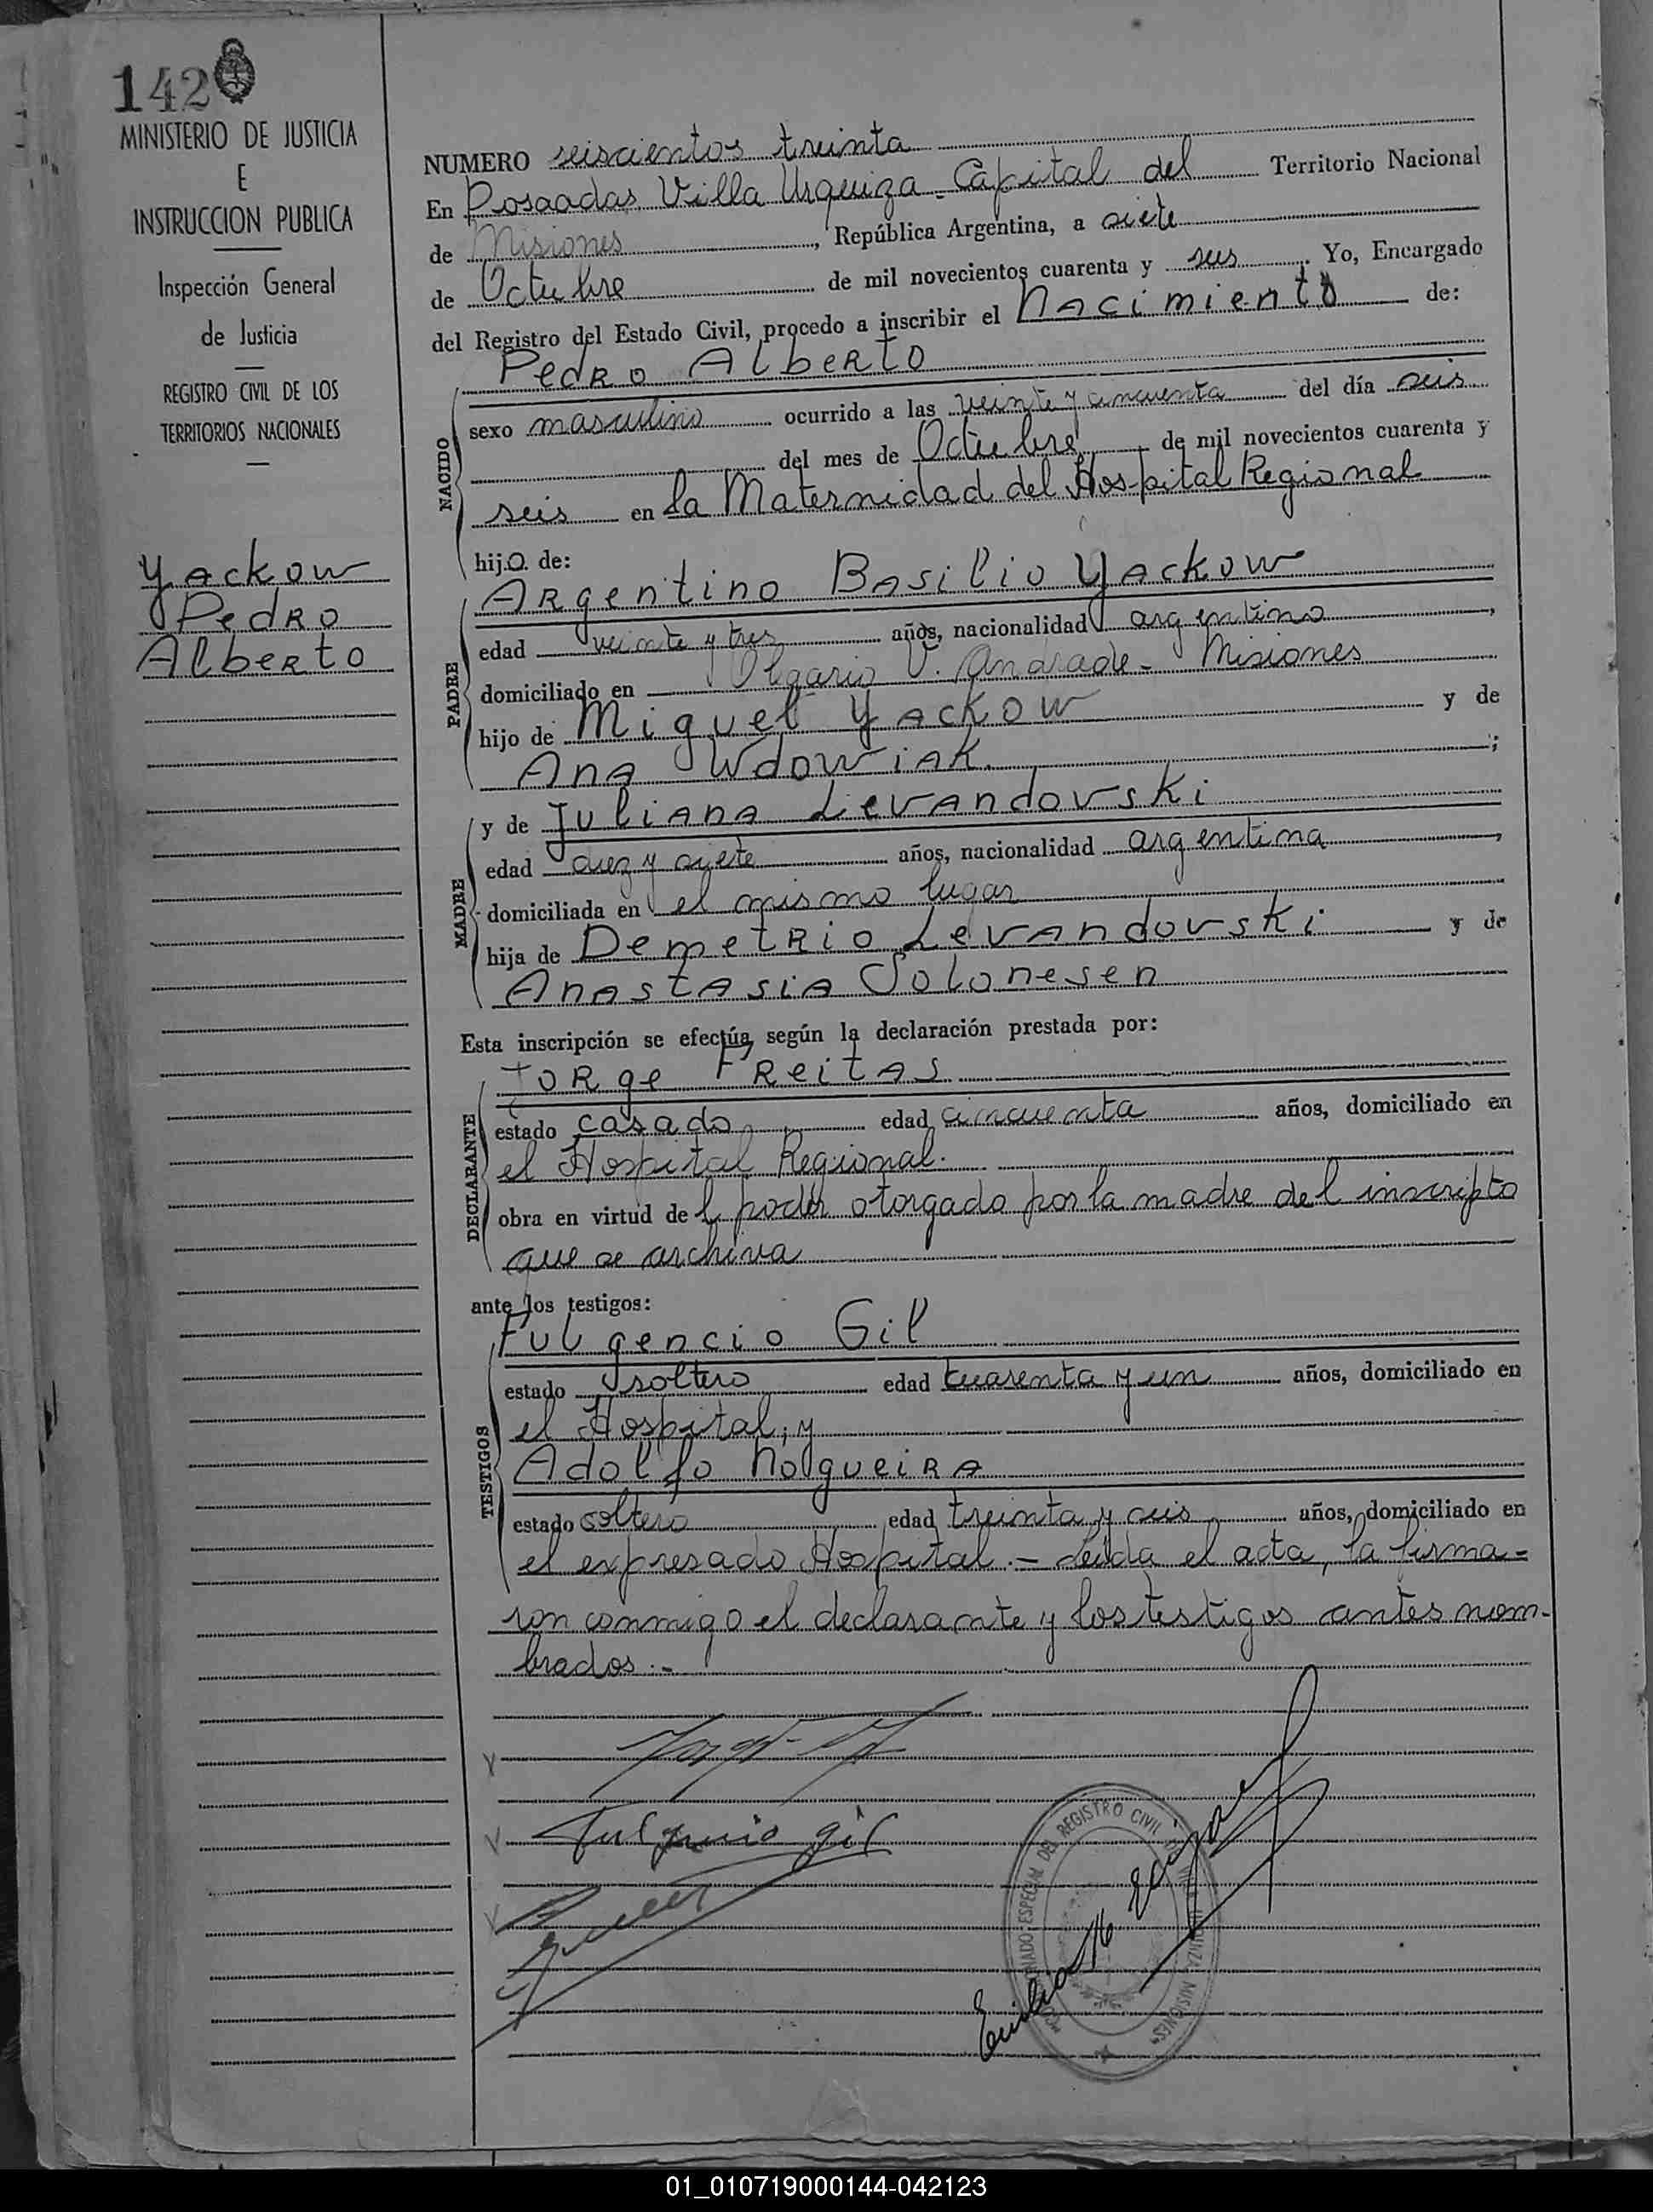 142
MINISTERIO DE JUSTICIA
E
INSTRUCCION PUBLICA
Inspección General
de Justicia
REGISTRO CIVIL DE LOS
TERRITORIOS NACIONALES
Yackow
Pedro
Alberto
NUMERO seiscientos treinta
En Posadas Villa Urquiza - Capital del Territorio Nacional
de Misiones, República Argentina, a siete
de Octubre de mil novecientos cuarenta y seis. Yo, Encargado
del Registro del Estado Civil, procedo a inscribir el Nacimiento de:
Pedro Alberto
NACIDO
sexo masculino ocurrido a las veinte y cincuenta del día seis
del mes de Octubre de mil novecientos cuarenta y
seis en la Maternidad del Hospital Regional
hijo de:
Argentino Basilio Yackow
PADRE
edad veinte y tres años, nacionalidad argentino,
domiciliado en Olgario V. Andrade - Misiones
hijo de Miguel Yackow y de
Ana Wdowiak.;
y de Juliana Levandovski
MADRE
edad diez y siete años, nacionalidad argentina,
domiciliada en el mismo lugar
hija de Demetrio Levandovski y de
Anastasia Solonesen
Esta inscripción se efectúa según la declaración prestada por:
Jorge Freitas
DECLARANTE
estado casado edad cincuenta años, domiciliado en
el Hospital Regional.
obra en virtud del poder otorgado por la madre del inscripto
que se archiva
ante los testigos:
Fulgencio Gil
TESTIGOS
estado soltero edad cuarenta y un años, domiciliado en
el Hospital; y
Adolfo Nogueira
estado soltero edad treinta y seis años, domiciliado en
el expresado Hospital.- Leída el acta, la firma-
ron conmigo el declarante y los testigos antes nom-
brados.-
Fulgencio Gil
ESPECIAL DEL REGISTRO CIVIL
MISIONES
01_010719000144-042123